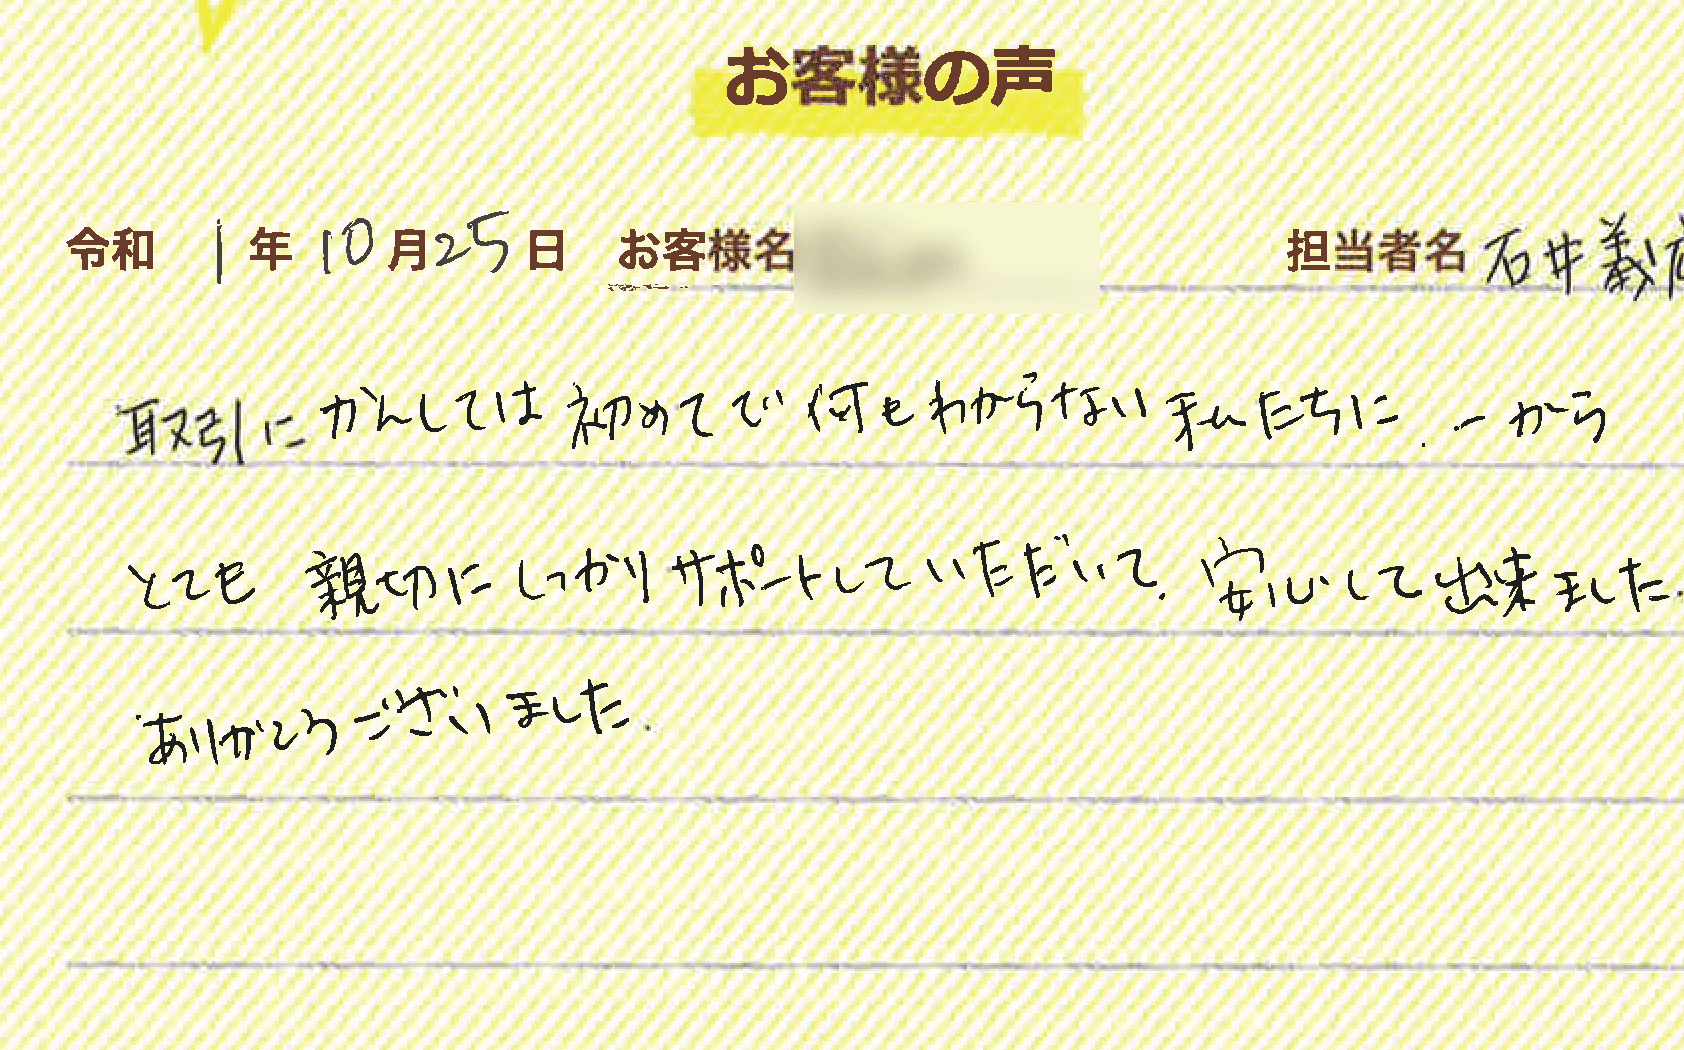 お客様の声
令和 1年 10月25日 お客様名 担当者名 石井義
取引にかんしては初めてで何もわからない私たちに、一から
とても親切にしっかりサポートしていただいて、安心して出来ました。
ありがとうございました。